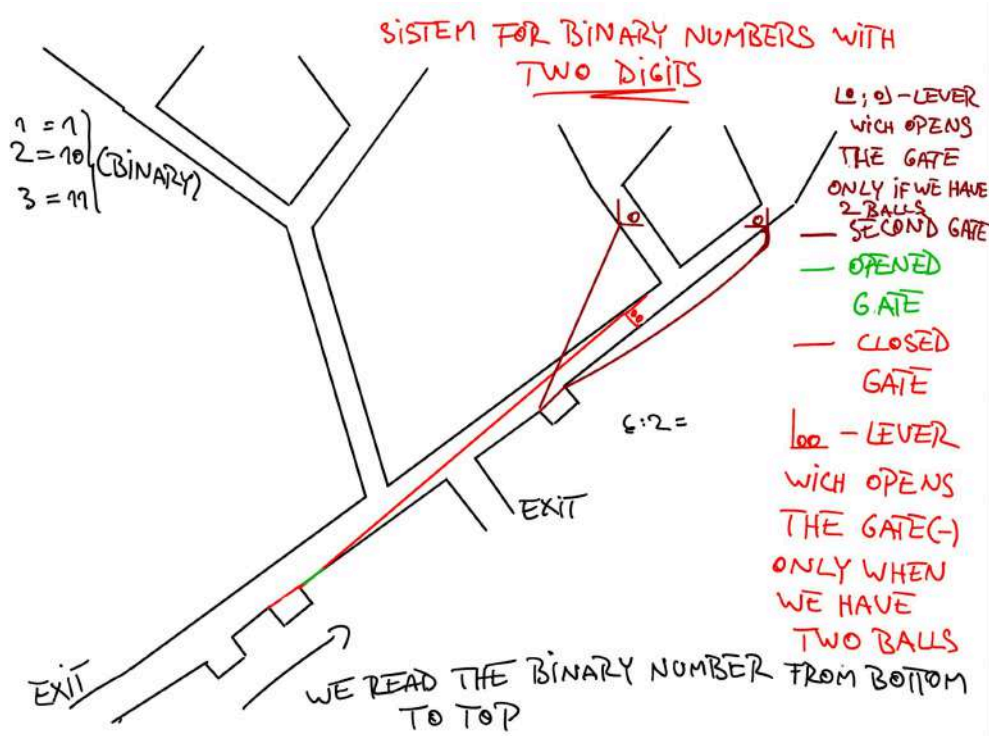 SISTEM FOR BINARY NUMBERS WITH
TWO DIGITS
1 = 1
2 = 10
3 = 11
(BINARY)
[0;0] - LEVER
WICH OPENS
THE GATE
ONLY IF WE HAVE
2 BALLS
— SECOND GATE
— OPENED
GATE
— CLOSED
GATE
|00 - LEVER
WICH OPENS
THE GATE(-)
ONLY WHEN
WE HAVE
TWO BALLS
0
0
00
6:2=
EXIT
EXIT
WE READ THE BINARY NUMBER FROM BOTTOM
TO TOP